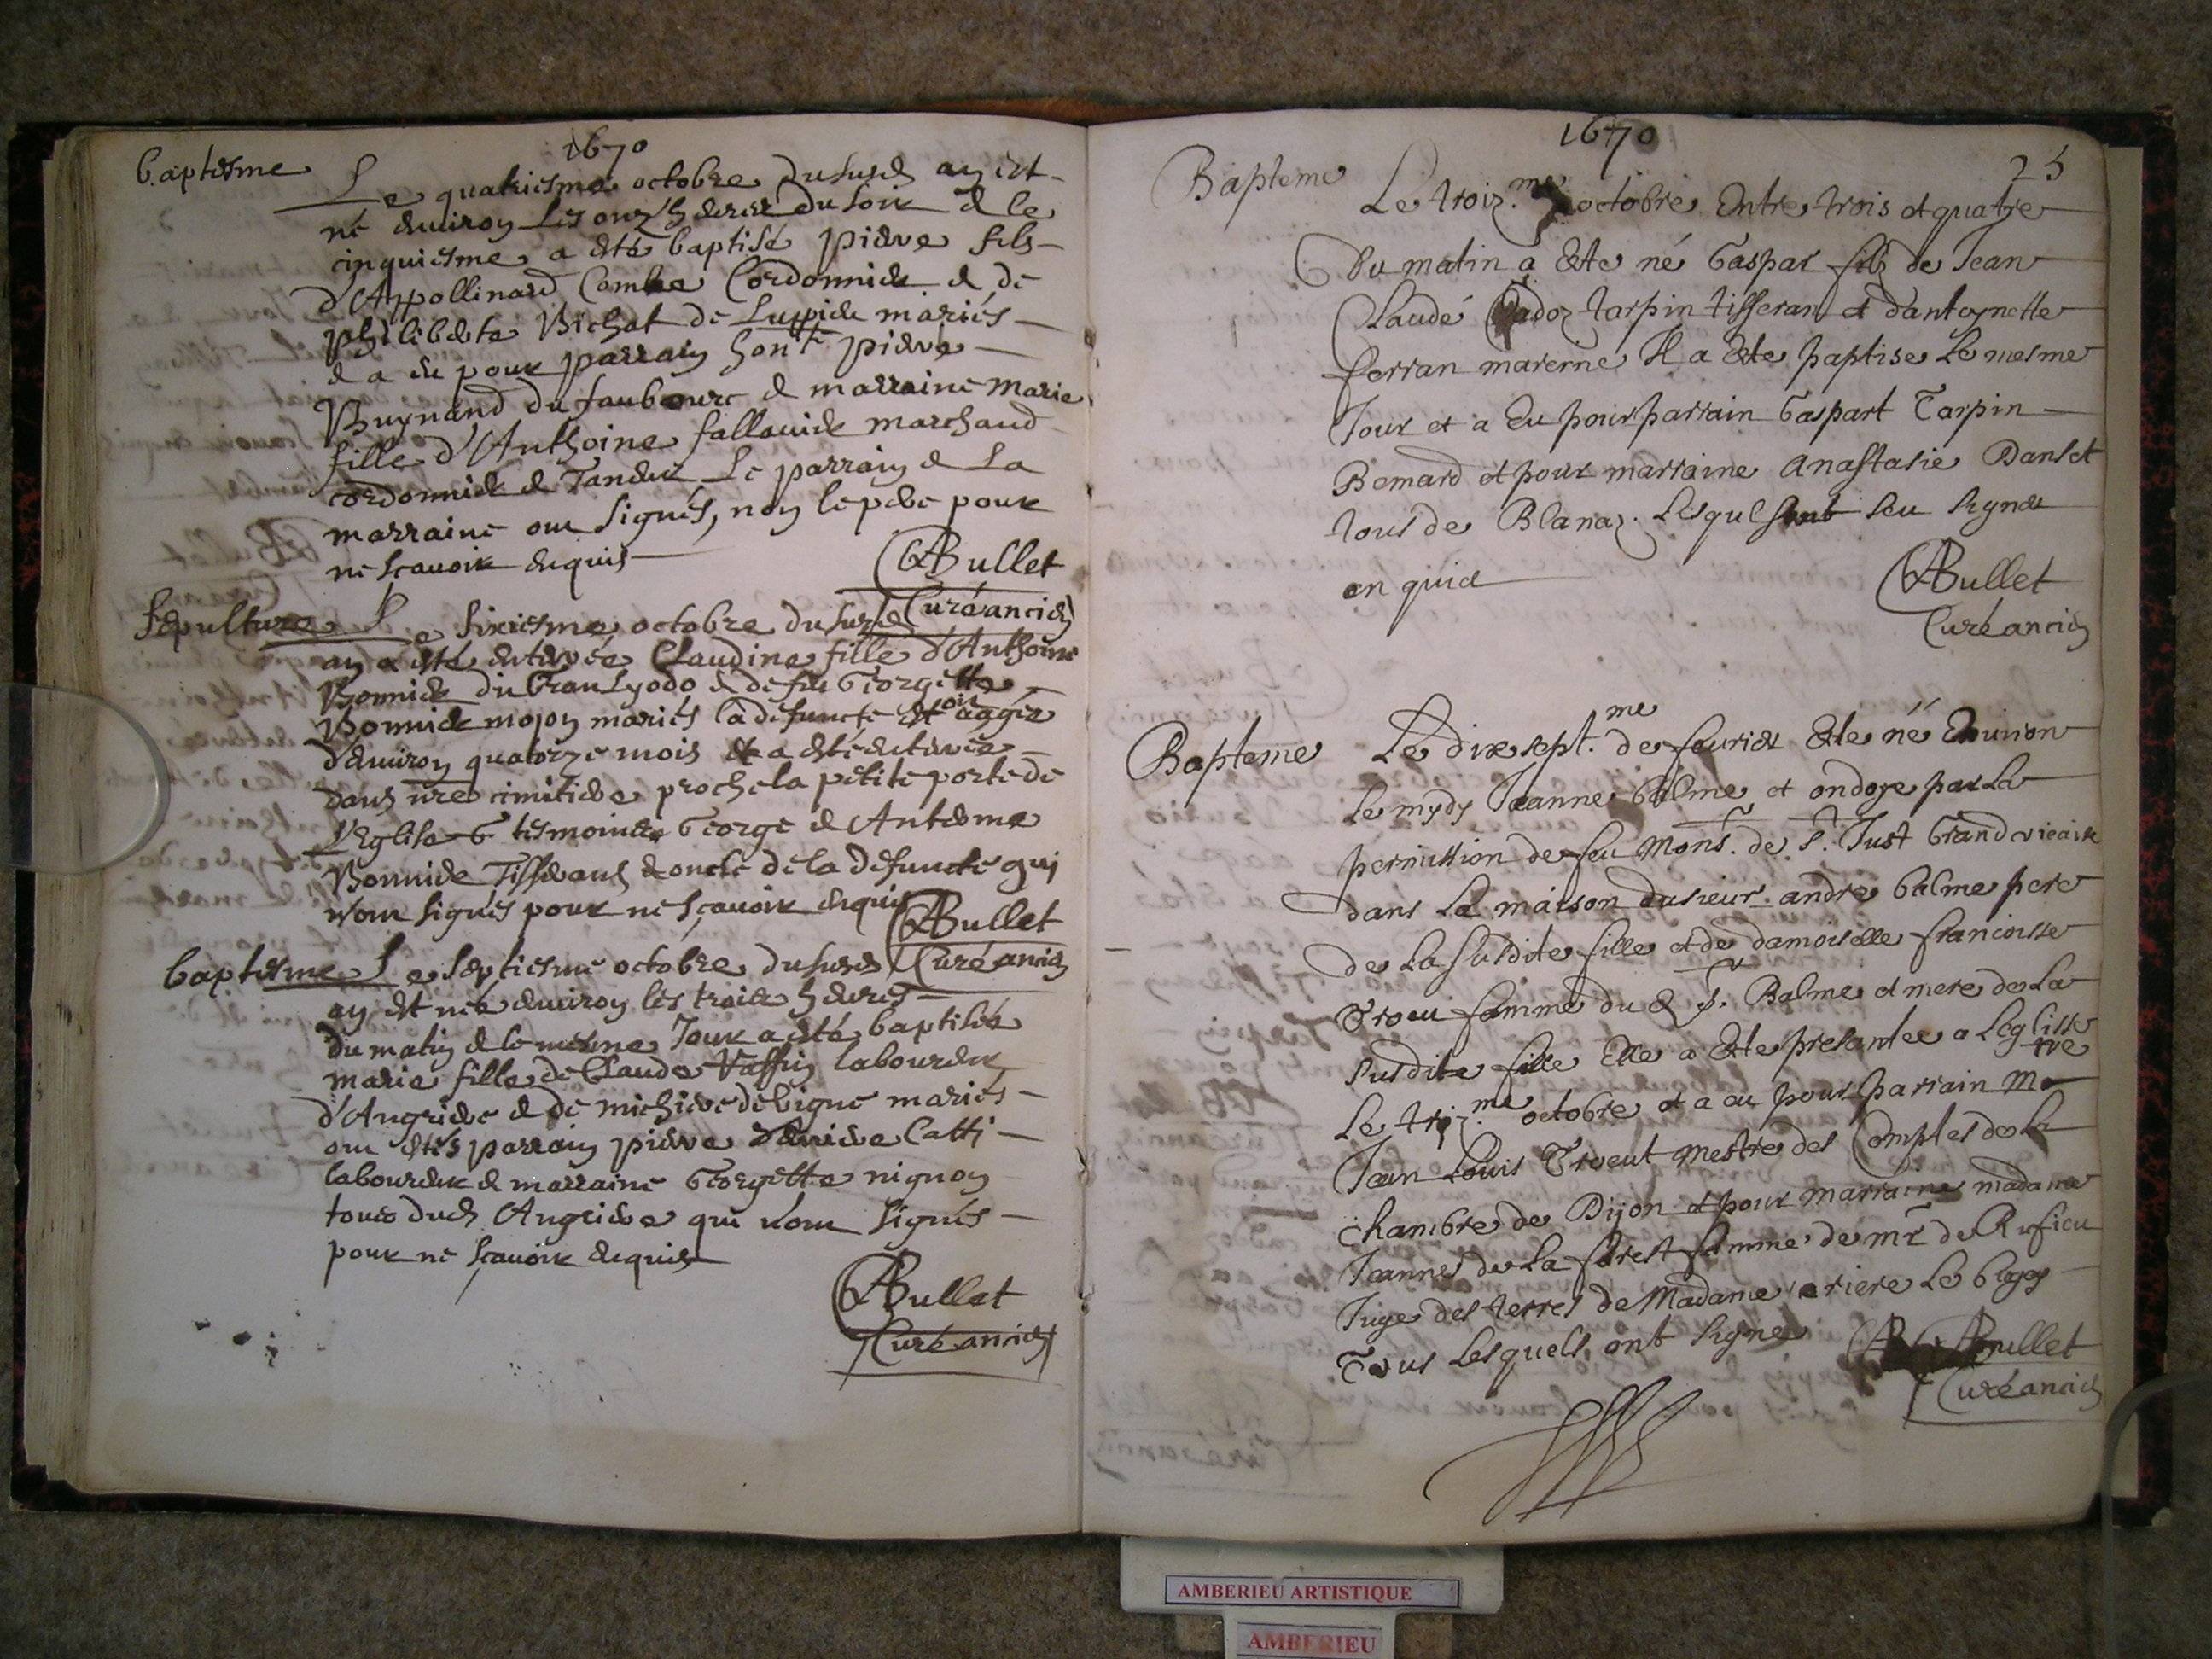 1670
baptesme
Le quatriesme octobre du susd an est
né environ les onz heures du soir & le
cinquiesme a esté baptisé pierre fils
d'Appollinard Combe Cordonnier & de
philiberte Bichat de mariés
& a eu pour parrain hon.te pierre
Buynand du faubourc & marraine Marie
fille d'Anthoine fallavier marchand
cordonnier & Tandeur Le parrain & La
marraine ont signés, non le pere pour
ne sçavoir enquis
ABullet
Curé ancien
Sepulture
Le sixiesme octobre du susd
an a esté enterrée Claudine fille d'Anthoine
Bonnier du & de fue Georgette
Bonnier mojon mariés la defuncte estoit aagée
d'environ quatorze mois & a esté enterrée
dans nre cimitiere proche la petite porte de
L'Eglise tesmoins George & Antesme
Bonnier Tisserans & oncle de la defuncte qui
n'ont signés pour ne sçavoir enquis
ABullet
Curé ancien
baptesme
Le septiesme octobre du susd
an est née environ les trois heures
du matin & le mesme Jour a esté baptisée
marie fille de Claude Vassin laboureur
d'Angriere & de michiere debigne mariés
ont estés parrain pierre Catti
laboureur & marraine Georgette nignon
tous dud Angriere qui n'ont signés
pour ne sçavoir enquis
ABullet
Curé ancien
1670
25
Bapteme
Le troiz.me octobre Entre trois et quatre
Du matin a Este né Gaspar filz de Jean
Claude Cadoz tarpin tisseran et dantoynette
ferran marerne Il a Este paptise Le mesme
Jour et a Eu pour parrain Gaspart Tarpin
Bernard et pour marraine anastasie Danset
tous de Blanaz. Lesquels sont seu signer
en quid
ABullet
Curé ancien
Bapteme
Le dix sept.me de feurier Este né Environ
Le mydy Jeanne balme et ondoye par La
permission de feu Mons. de S. Just Grand vicaire
dans La maison du sieur andre balme pere
de La susdite fille et de damoiselle francoisse
Trocu femme du d S. Balme et mere de La
susdite fille Elle a Este presantee a Leglisse
Le troiz.me octobre et a eu pour parrain Mre
Jean Louis Trocut mestre des Comptes de La
Chambre de Dijon et pour marraine madame
Jeanne de La forest femme de mr de Rufieu
Juge des terres de Madame ariere Le bugey
Tous Lesquels ont signe
ABullet
Curé ancien
AMBERIEU ARTISTIQUE
AMBERIEU